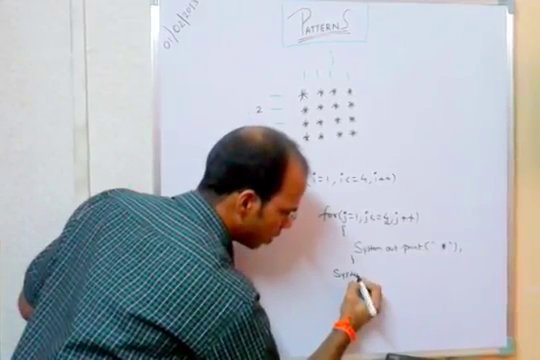 01/02/2013
PATTERNS
j
* * * *
2 * * * *
* * * *
* * * *
(i=1, i<=4, i++)
for(j=1, j<=4, j++)
{
System out print(" * ");
}
Syste